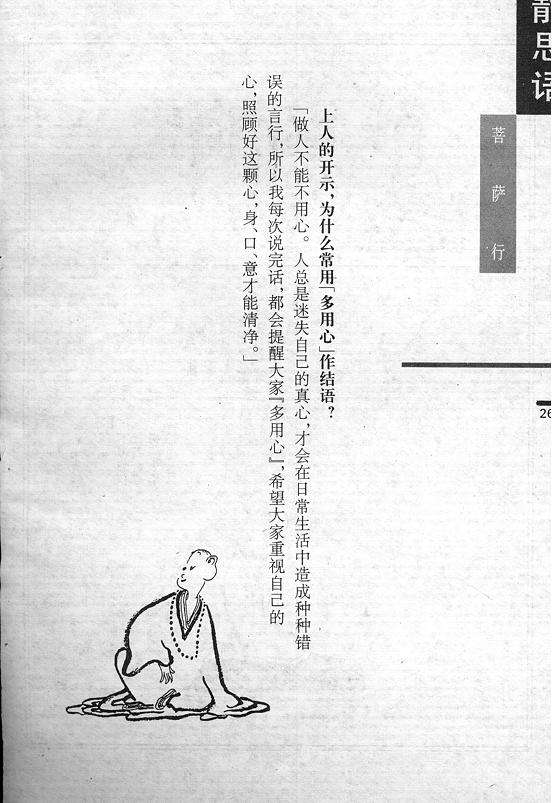 静思语
菩萨行
26
上人的开示，为什么常用「多用心」作结语？
「做人不能不用心。人总是迷失自己的真心，才会在日常生活中造成种种错
误的言行，所以我每次说完话，都会提醒大家『多用心』，希望大家重视自己的
心，照顾好这颗心，身、口、意才能清净。」